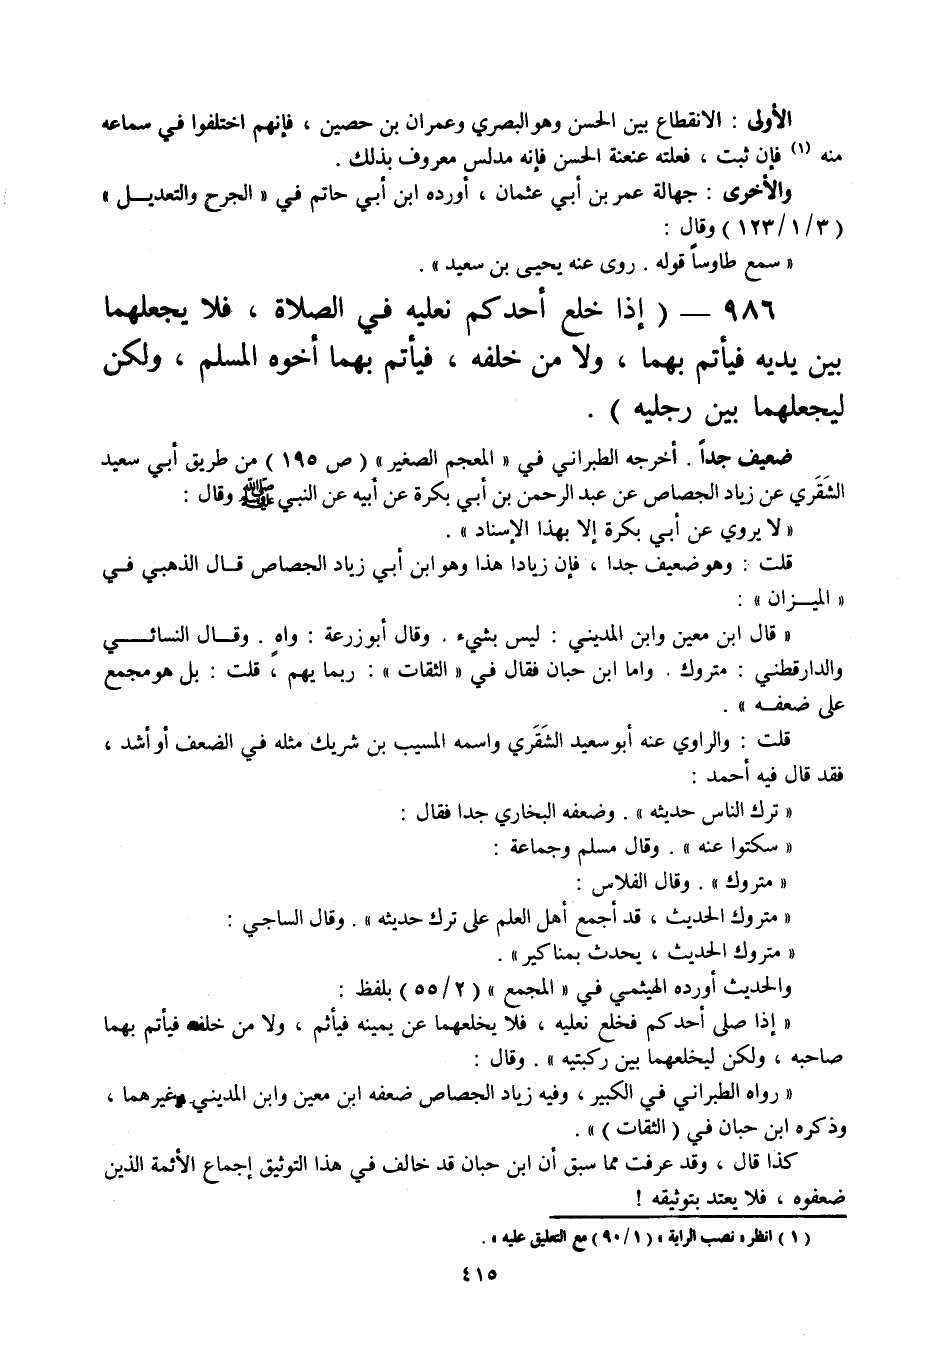 الأولى : الانقطاع بين الحسن وهو البصري وعمران بن حصين ، فإنهم اختلفوا في سماعه
منه (١) فإن ثبت ، فعلته عنعنة الحسن فإنه مدلس معروف بذلك .
والأخرى : جهالة عمر بن أبي عثمان ، أورده ابن أبي حاتم في « الجرح والتعديل »
( ٣/ ١/ ١٢٣ ) وقال :
« سمع طاوساً قوله . روى عنه يحيى بن سعيد » .
٩٨٦ — ( إذا خلع أحدكم نعليه في الصلاة ، فلا يجعلهما
بين يديه فيأتم بهما ، ولا من خلفه ، فيأتم بهما أخوه المسلم ، ولكن
ليجعلهما بين رجليه ) .
ضعيف جداً . أخرجه الطبراني في « المعجم الصغير » ( ص ١٩٥ ) من طريق أبي سعيد
الشَقَري عن زياد الجصاص عن عبد الرحمن بن أبي بكرة عن أبيه عن النبي ﷺ وقال :
« لا يروي عن أبي بكرة إلا بهذا الإسناد » .
قلت : وهو ضعيف جدا ، فإن زيادا هذا وهو ابن أبي زياد الجصاص قال الذهبي في
« الميزان » :
« قال ابن معين وابن المديني : ليس بشيء . وقال أبو زرعة : واهٍ . وقال النسائي
والدارقطني : متروك . واما ابن حبان فقال في « الثقات » : ربما يهم ، قلت : بل هو مجمع
على ضعفه » .
قلت : والراوي عنه أبو سعيد الشَقَري واسمه المسيب بن شريك مثله في الضعف أو أشد ،
فقد قال فيه أحمد :
« ترك الناس حديثه » . وضعفه البخاري جدا فقال :
« سكتوا عنه » . وقال مسلم وجماعة :
« متروك » . وقال الفلاس :
« متروك الحديث ، قد أجمع أهل العلم على ترك حديثه » . وقال الساجي :
« متروك الحديث ، يحدث بمناكير » .
والحديث أورده الهيثمي في « المجمع » ( ٢/ ٥٥ ) بلفظ :
« إذا صلى أحدكم فخلع نعليه ، فلا يخلعهما عن يمينه فيأثم ، ولا من خلفه فيأتم بهما
صاحبه ، ولكن ليخلعهما بين ركبتيه » . وقال :
« رواه الطبراني في الكبير ، وفيه زياد الجصاص ضعفه ابن معين وابن المديني وغيرهما ،
وذكره ابن حبان في ( الثقات ) » .
كذا قال ، وقد عرفت مما سبق أن ابن حبان قد خالف في هذا التوثيق إجماع الأئمة الذين
ضعفوه ، فلا يعتد بتوثيقه !
( ١ ) انظر « نصب الراية » ( ١/ ٩٠ ) مع التعليق عليه » .
٤١٥